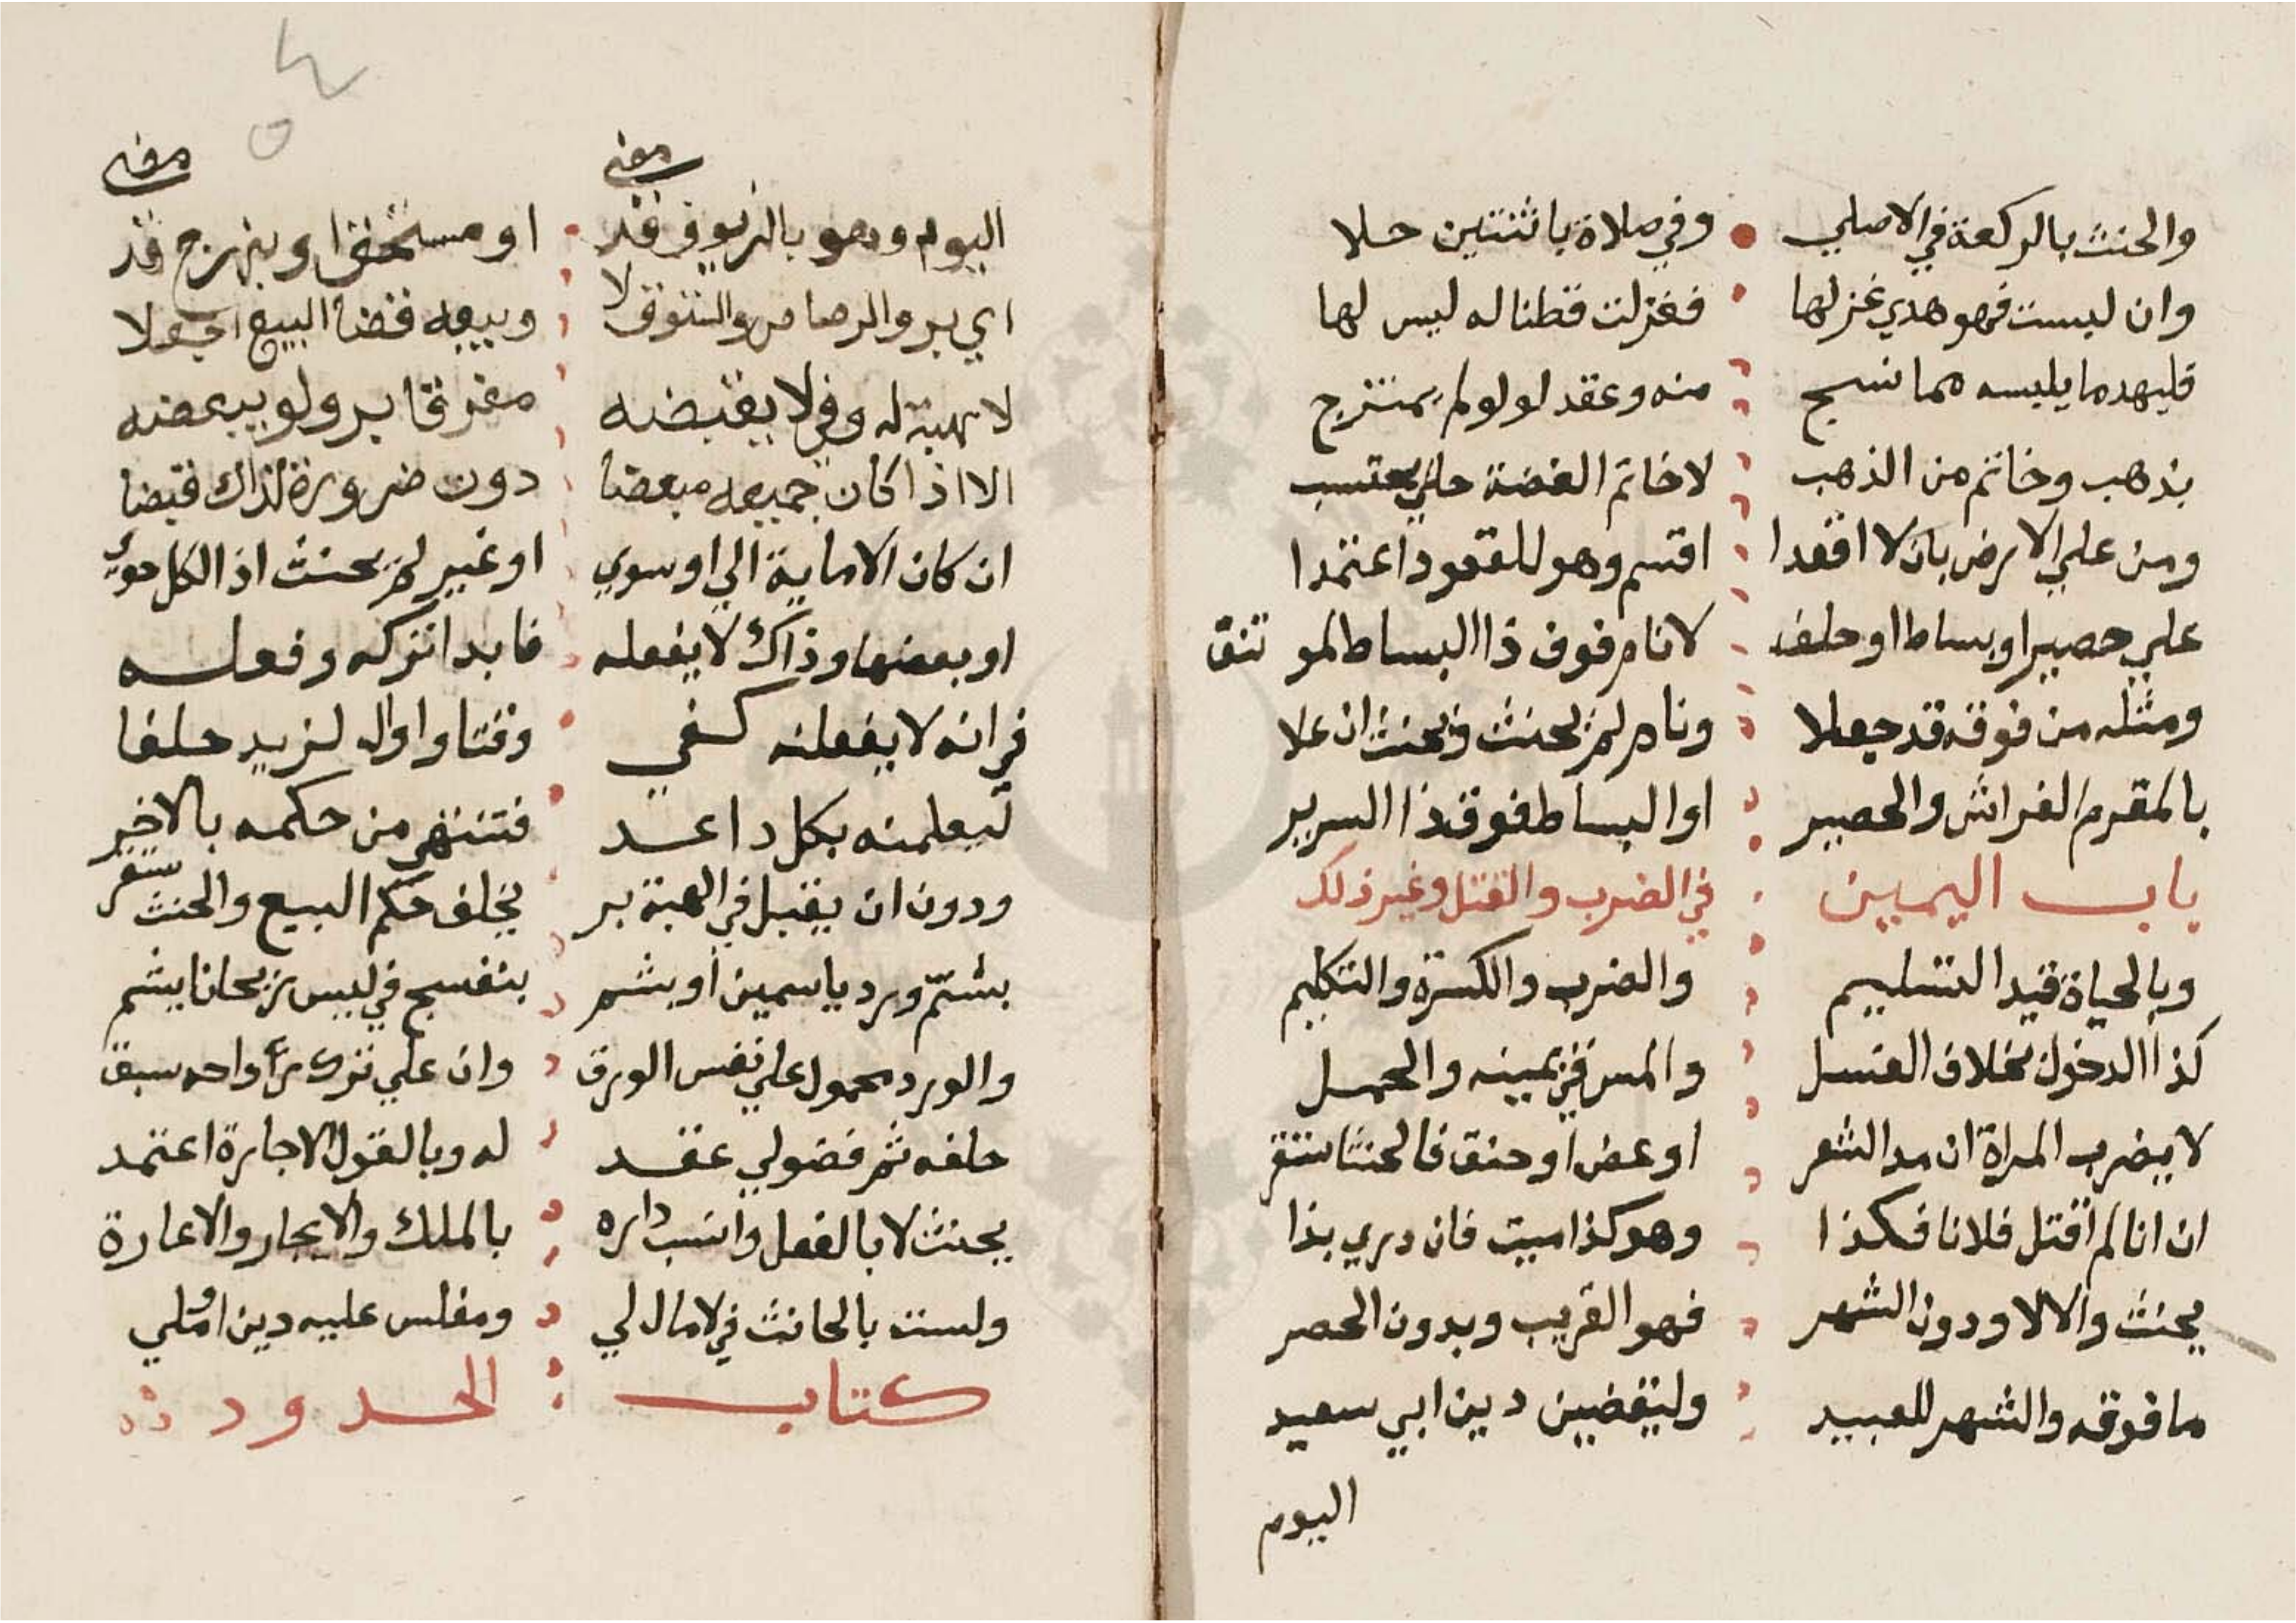 والحنث بالركعة في الاصلي وفي صلاة باثنتين حلا
وان لبست فهو هدي غزلها فغزلت قطنا له ليس لها
فليهد ما يلبسه مما نسج منه وعقد لولو لم يمتزج
بذهب وخاتم من الذهب لا خاتم الفضة حلي يحتسب
ومن علي الارض بان لا اقعدا اقسم وهو للقعود اعتمدا
علي حصير او بساط او حلف لا نام فوق ذا البساط لمو تنق
ومثله من فوقه قد جعلا ونام لم يحنث ويحنث ان علا
بالمقرم الفراش والحصير او البساط فوق ذا السرير
باب اليمين في الضرب والقتل وغير ذلك
وبالحياة قيد التسليم والضرب والكسوة والتكليم
كذا الدخول بخلاف الغسل والمس في يمينه والحمل
لا يضرب المراة ان مد الشعر او عض او خنق فالحنث استقر
ان انا لم اقتل فلانا فكذا وهو كذا ميت فان دري بذا
يحنث والا لا ودون الشهر فهو القريب وبدون الحصر
ما فوقه والشهر للعبيد وليقضين دين ابي سعيد
اليوم
اليوم وهو بالزيوف قد او مستحقا وبنهرج قد
اي بر والرصاص والستوق لا وبيعه قضا البيع اجعلا
لا هبة له وفي لا يقبضه مفرقا بر ولو ببعضه
الا اذا كان جميعه مبعضا دون ضرورة لذاك قبضا
ان كان الا ماية الي او سوي او غير لم يحنث اذ الكل حوي
او بعضها وذاك لا يفعله فابدا تركه وفعله
في انه لا يفعلنه كفي وقتا واوال لزيد حلفا
ليعلمنه بكل داعد فتنتهي من حكمه بالاخير
ودون ان يقبل في الهبة بر بخلف حكم البيع والحنث سقر
بشم ورد ياسمين او بشم بنفسج في ليس ريحانا يشم
والورد محمول علي نفس الورق وان علي تزوج واحد سبق
حلفه ثم فضولي عقد له وبالقول الاجازة اعتمد
يحنث لا بالفعل وانسب داره بالملك والايجار والاعارة
ولست بالحانث في لا مال لي ومفلس عليه دين املي
كتاب الحدود